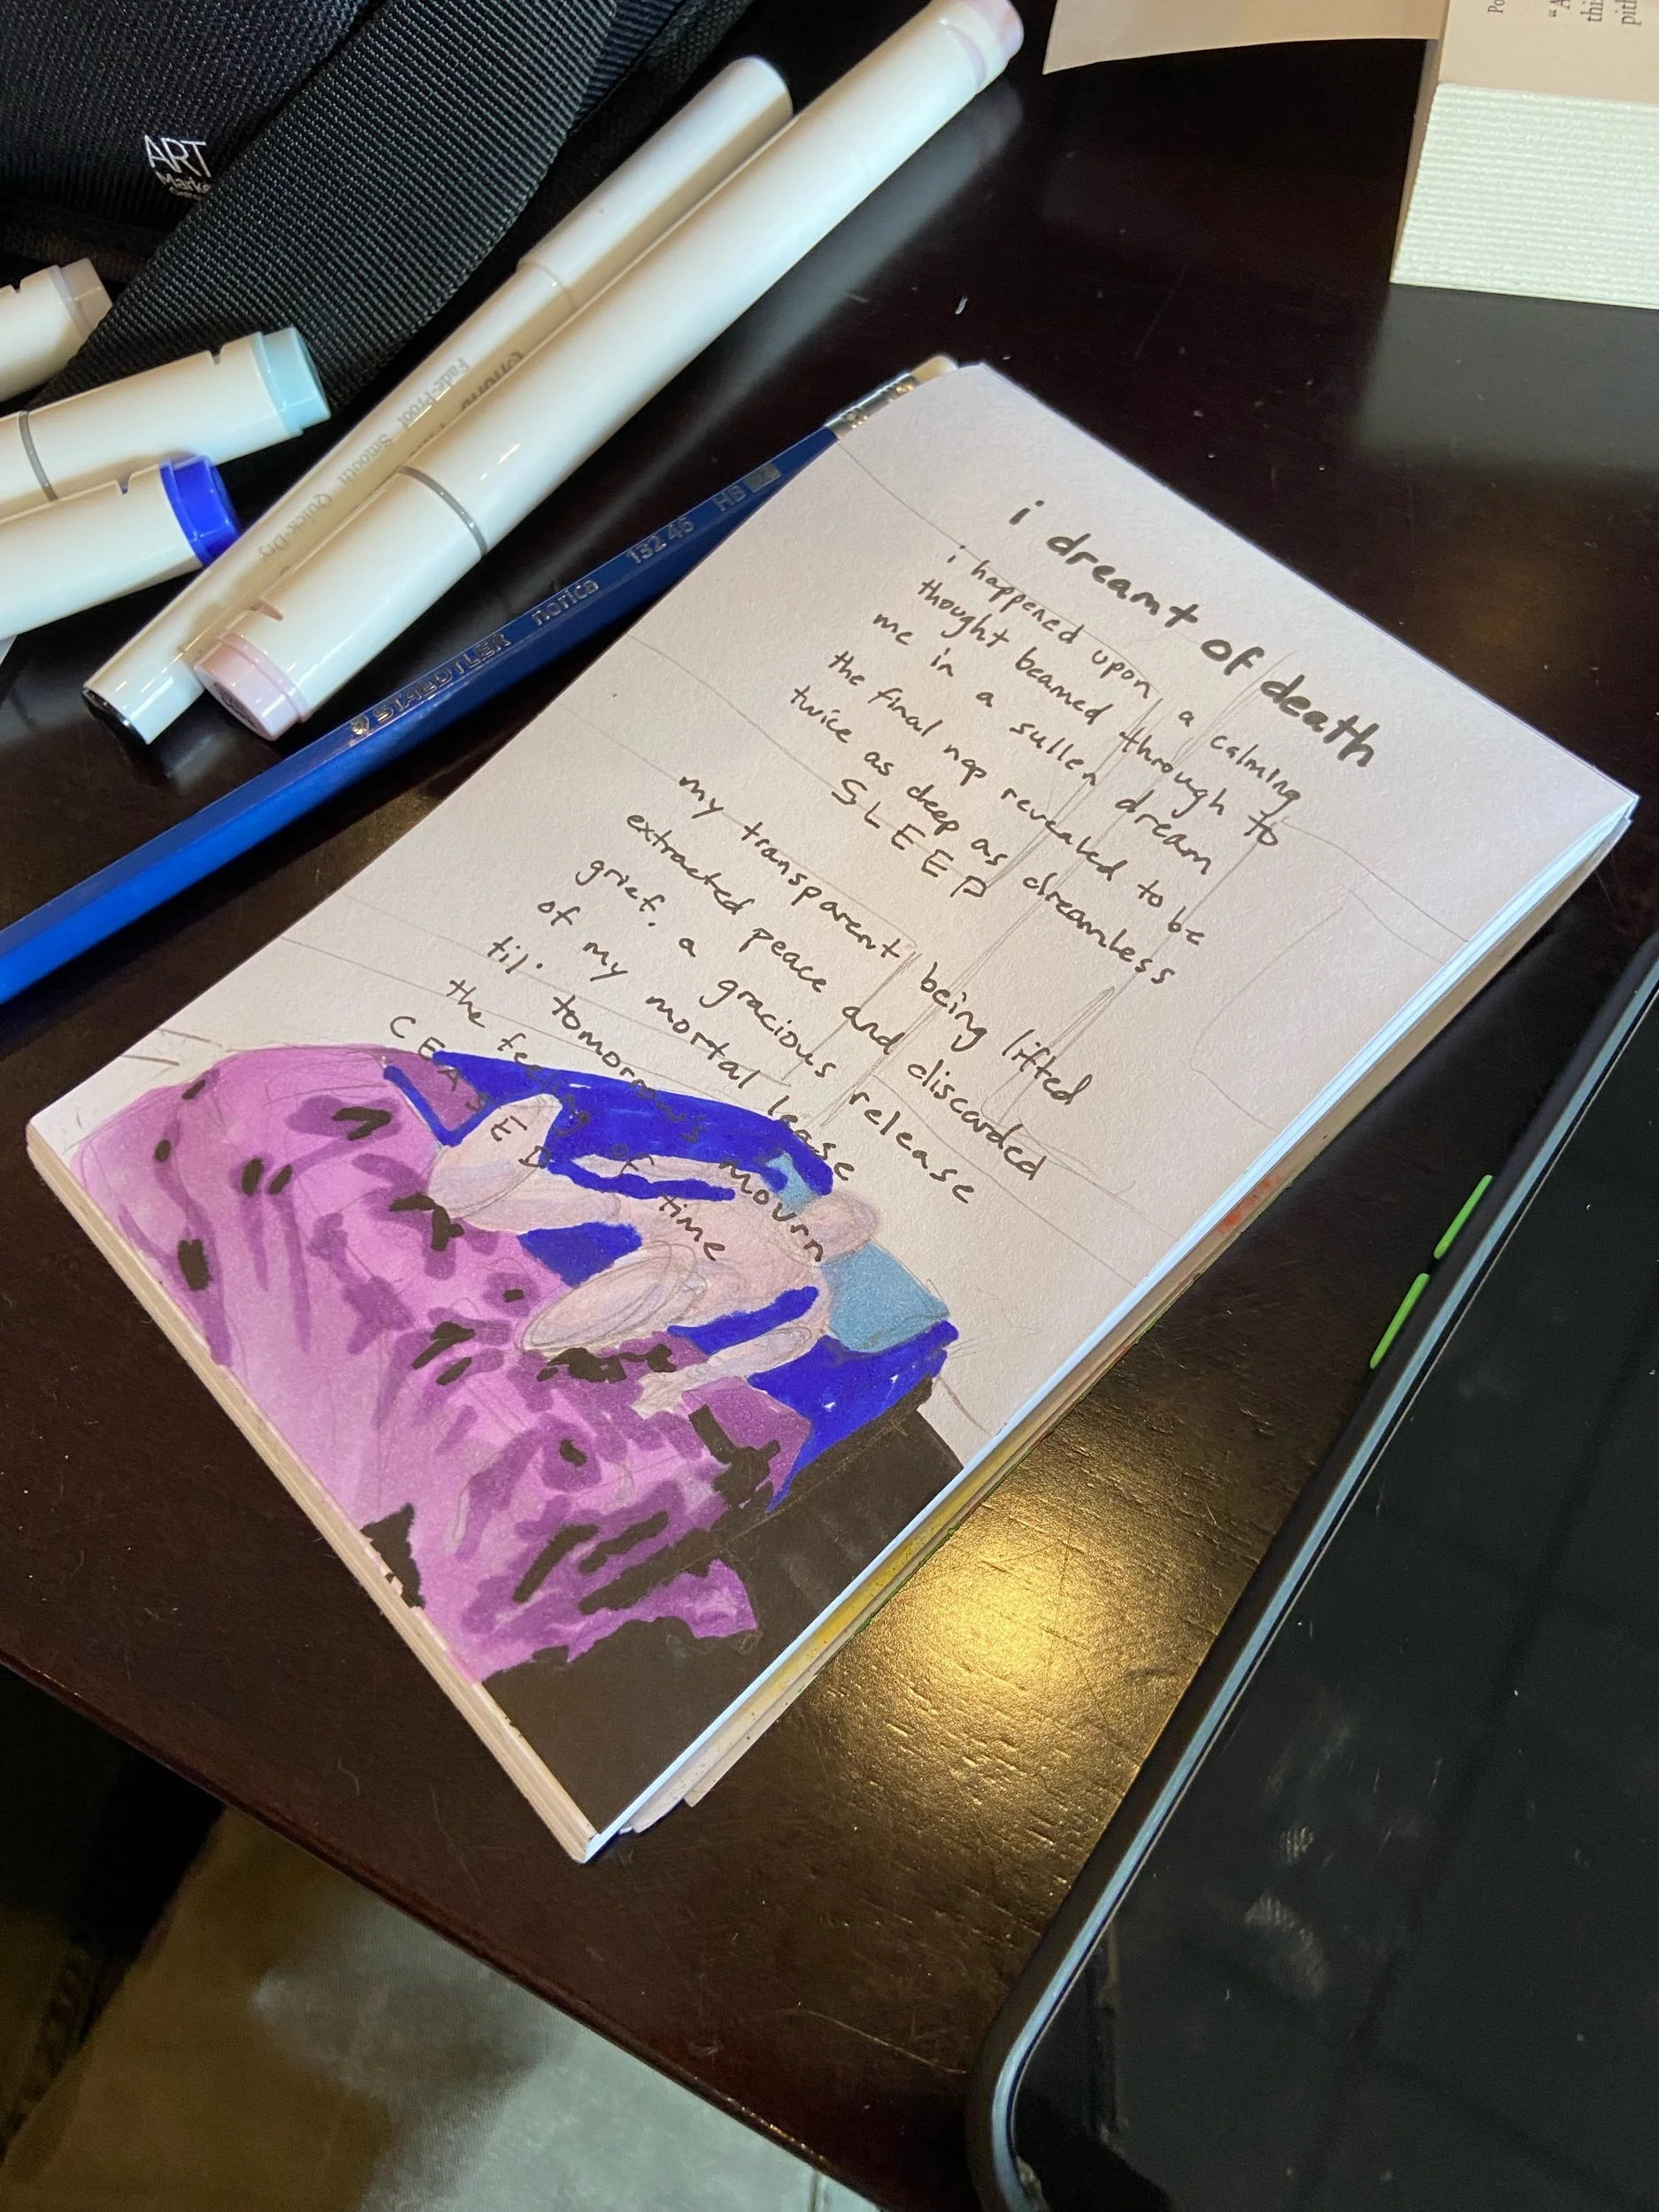 ART
Marke
Fade-Proof Smooth Quick-Dry
STAEDTLER norica 132 46 HB
i dreamt of death
i happened upon a calming
thought beamed through to
me in a sullen dream
the final nap revealed to be
twice as deep as dreamless
SLEEP
my transparent being lifted
extracted peace and discarded
grief. a gracious release
of my mortal lease
til. tomorrows mourn
the feeling of time
CEASED